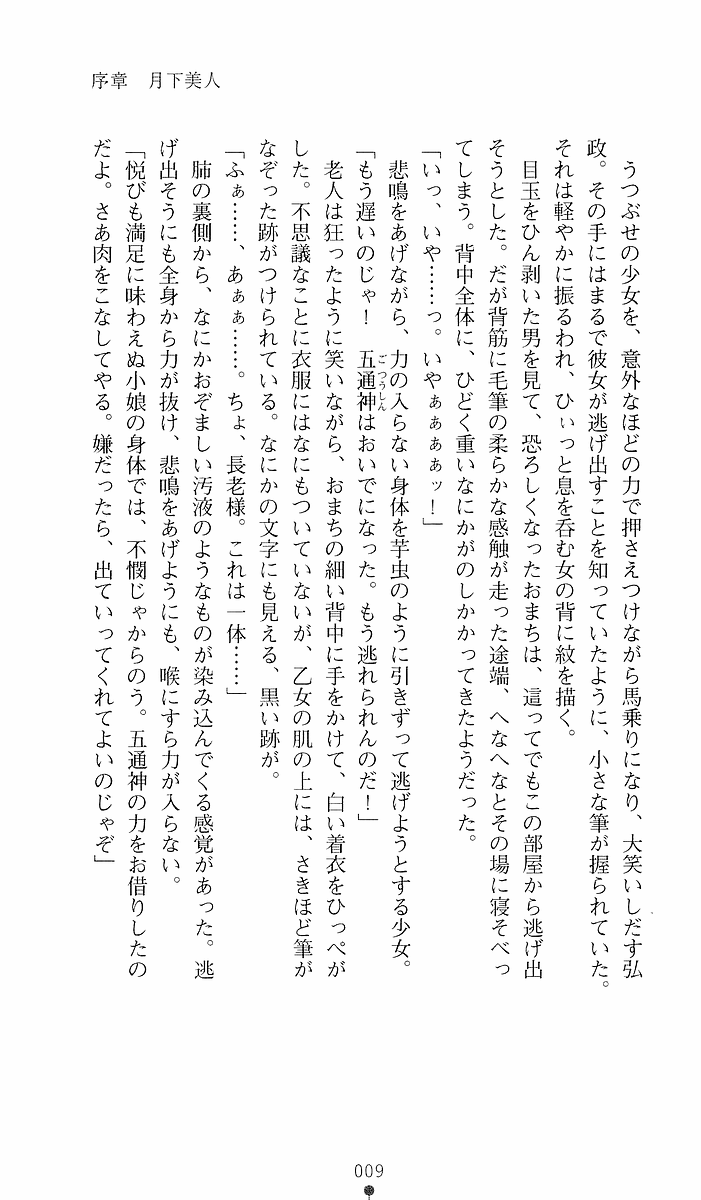 序章　月下美人
うつぶせの少女を、意外なほどの力で押さえつけながら馬乗りになり、大笑いしだす弘
政。その手にはまるで彼女が逃げ出すことを知っていたように、小さな筆が握られていた。
それは軽やかに振るわれ、ひぃっと息を呑む女の背に紋を描く。
目玉をひん剥いた男を見て、恐ろしくなったおまちは、這ってでもこの部屋から逃げ出
そうとした。だが背筋に毛筆の柔らかな感触が走った途端、へなへなとその場に寝そべっ
てしまう。背中全体に、ひどく重いなにかがのしかかってきたようだった。
「いっ、いや……っ。いやぁぁぁぁッ！」
悲鳴をあげながら、力の入らない身体を芋虫のように引きずって逃げようとする少女。
「もう遅いのじゃ！　五通神はおいでになった。もう逃れられんのだ！」
ごつうしん
老人は狂ったように笑いながら、おまちの細い背中に手をかけて、白い着衣をひっぺが
した。不思議なことに衣服にはなにもついていないが、乙女の肌の上には、さきほど筆が
なぞった跡がつけられている。なにかの文字にも見える、黒い跡が。
「ふぁ……、あぁぁ……。ちょ、長老様。これは一体……」
肺の裏側から、なにかおぞましい汚液のようなものが染み込んでくる感覚があった。逃
げ出そうにも全身から力が抜け、悲鳴をあげようにも、喉にすら力が入らない。
「悦びも満足に味わえぬ小娘の身体では、不憫じゃからのう。五通神の力をお借りしたの
だよ。さあ肉をこなしてやる。嫌だったら、出ていってくれてよいのじゃぞ」
009